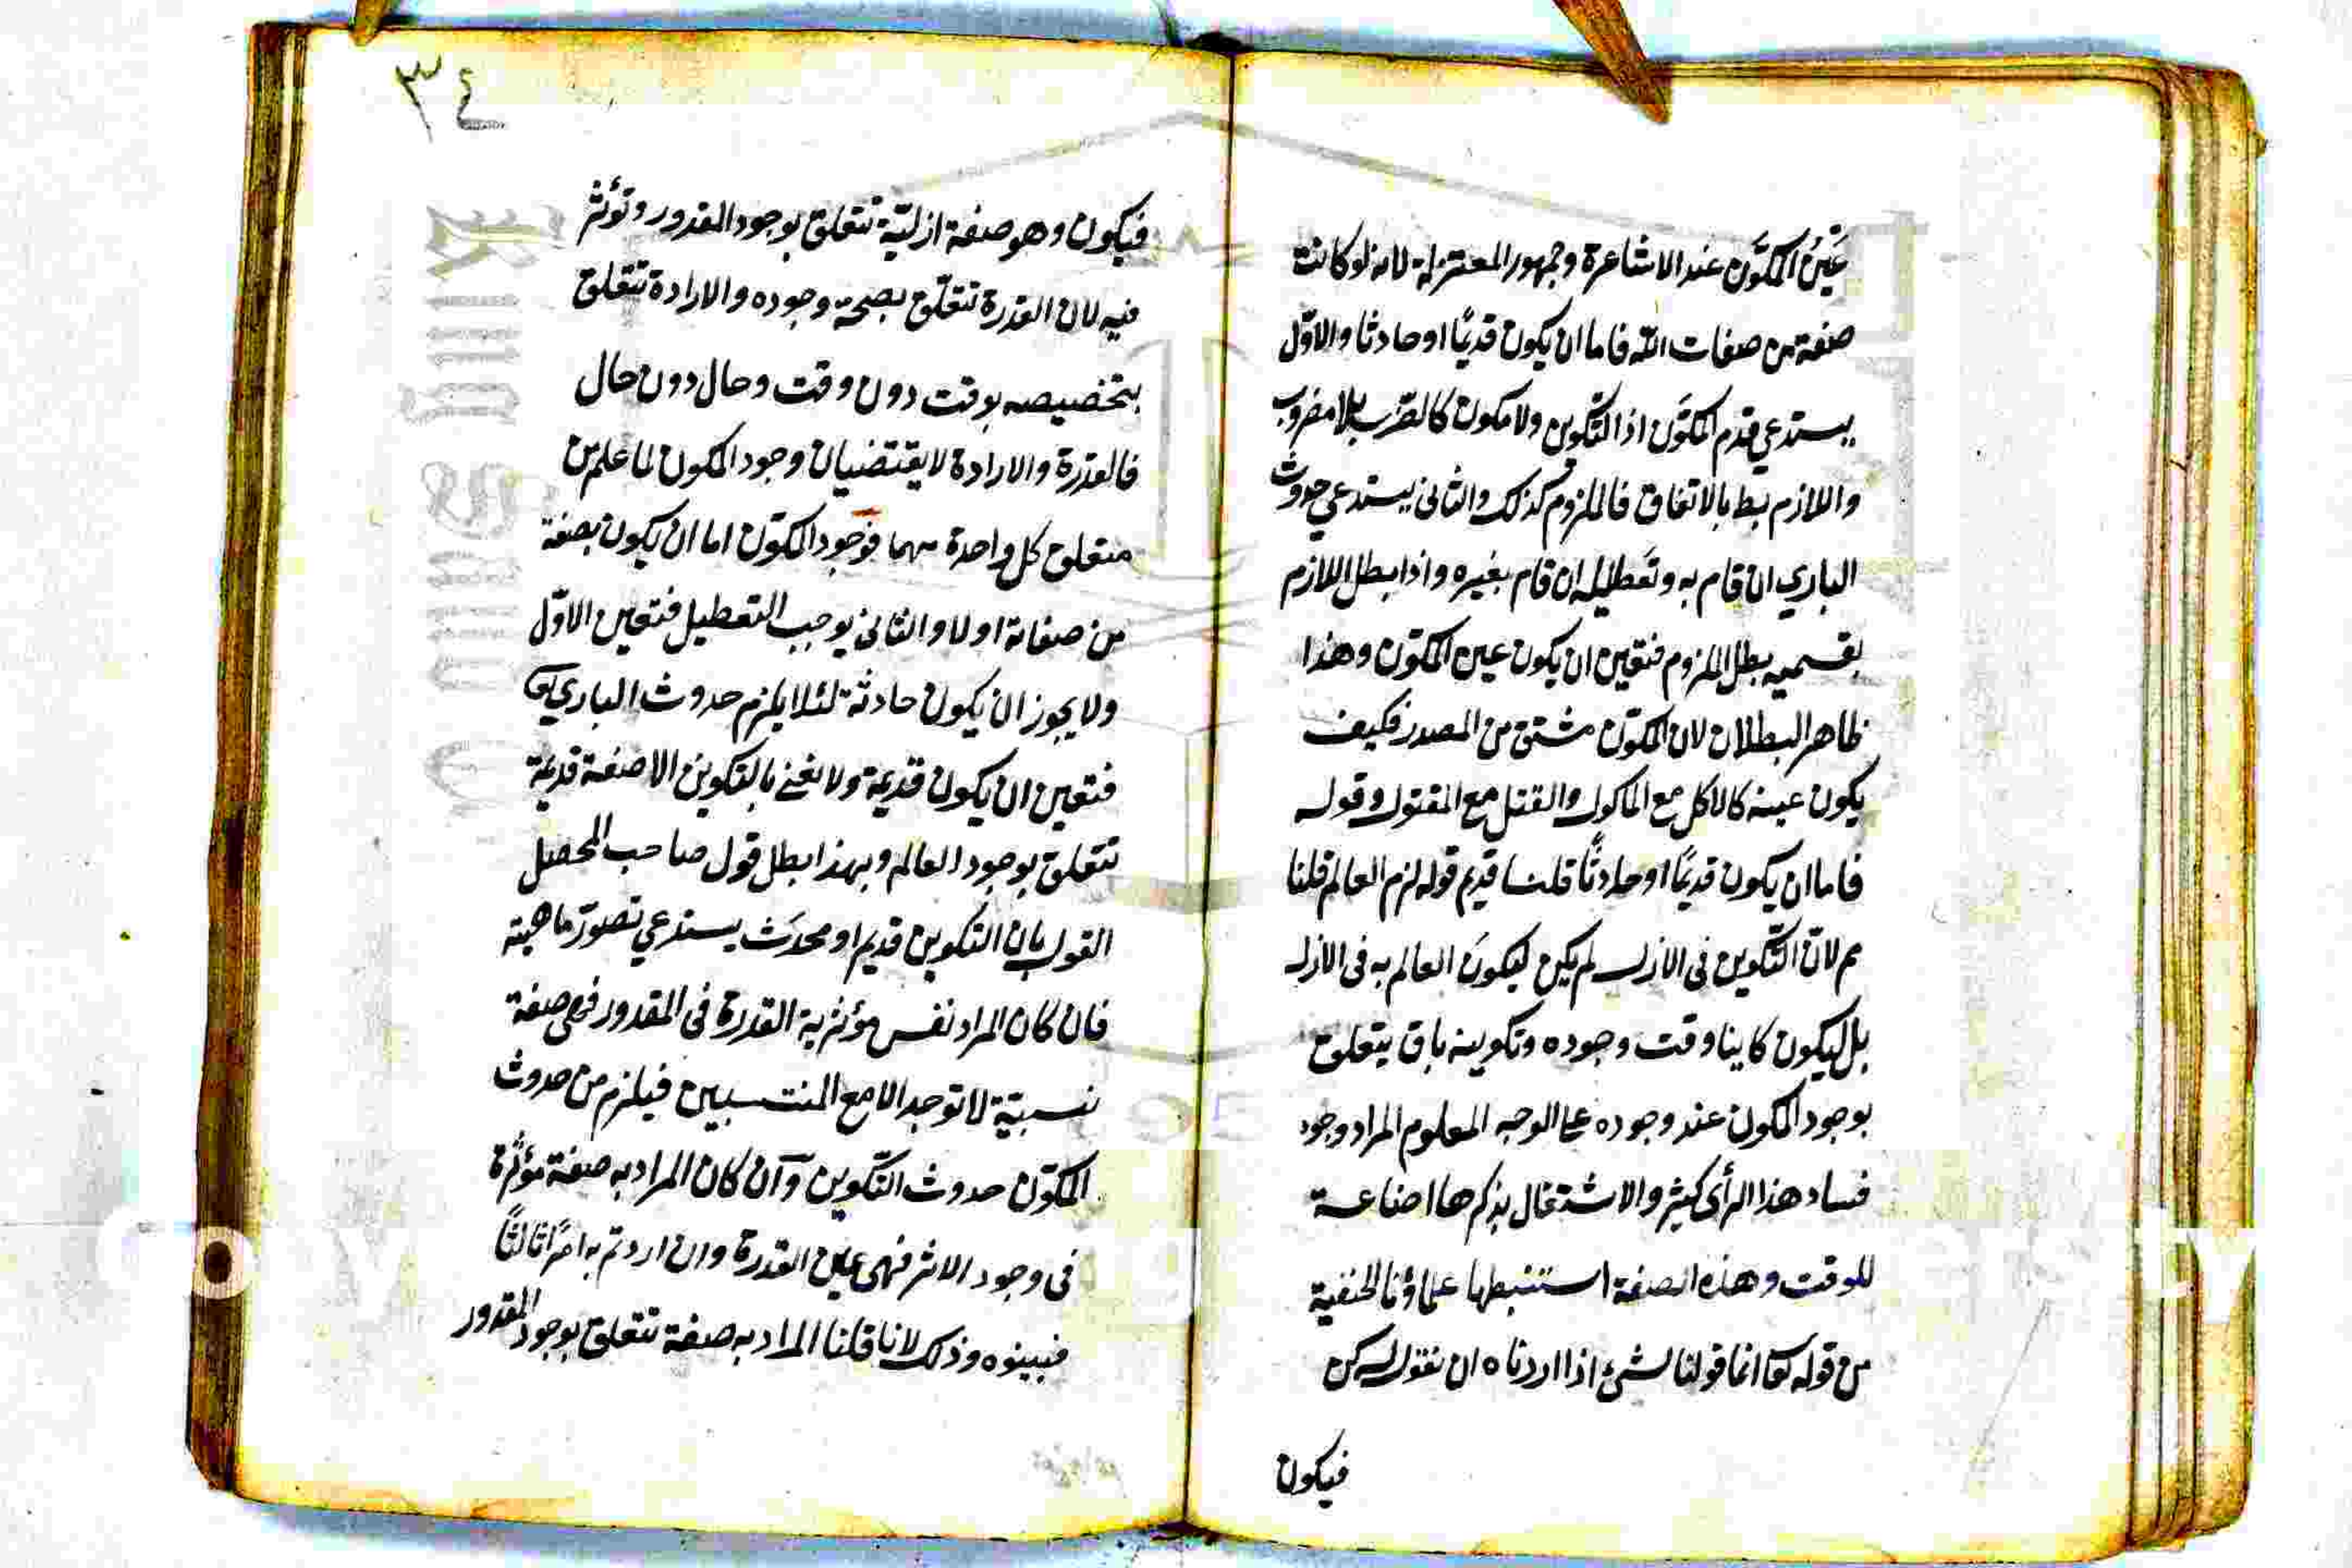 عَيْنُ المكوَّن عند الاشاعرة وجمهور المعتزلة لانه لو كانت
صفة من صفات الله فاما ان يكون قديمًا او حادثا والاوّل
يستدعي قدم المكوَّن اذ التكوين ولا مكون كالضرب بلا مضروب
واللازم بط بالاتفاق فالملزوم كذلك والثاني يستدعي حدوث
الباري ان قام به وتعطيله ان قام بغيره واذا بطل اللازم
بقسميه بطل الملزوم فتعين ان يكون عين المكوّن وهذا
ظاهر البطلان لان المكوّن مشتق من المصدر فكيف
يكون عينه كالاكل مع الماكول والقتل مع المقتول وقوله
فاما ان يكون قديمًا او حادثًا قلنا قديم قوله لزم العالم قلنا
مم لانّ التكوين فى الازل لم يكن ليكونَ العالم به فى الازل
بل ليكون كاينا وقت وجوده وتكوينه باق يتعلق
بوجود المكون عند وجوده على الوجه المعلوم المراد وجود
فساد هذا الرأى كثير والاشتغال بذكرها اضاعة
للوقت وهذه الصفة استنبطها علماؤنا الحنفية
من قوله تعا انما قولنا لشئ اذا اردناه ان نقول له كن
فيكون
٣٤
فيكون وهو صفة ازليّة تتعلق بوجود المقدور وتؤثر
فيه لان القدرة تتعلّق بصحة وجوده والارادة تتعلق
بتخصيصه بوقت دون وقت وحال دون حال
فالقدرة والارادة لا يقتضيان وجود المكون لما علم من
متعلق كل واحدة منهما فوجود المكوّن اما ان يكون بصفة
من صفاته اولا والثاني يوجب التعطيل فتعين الاوّل
ولا يجوز ان يكون حادثة لئلا يلزم حدوث الباري تعا
فتعين ان يكون قديمة ولا نعني بالتكوين الا صفة قديمة
تتعلق بوجود العالم وبهذا بطل قول صاحب المحصل
القول بان التكوين قديم او محدَث يستدعي تصوّر ماهيته
فان كان المراد نفس مؤثرية القدرة فى المقدور فهى صفة
نسبيّة لا توجد الا مع المنتسبين فيلزم من حدوث
المكوّن حدوث التكوين وان كان المراد به صفة مؤثرة
فى وجود الاثر فهى عين القدرة وان اردتم به امرًا ثالثًا
فبينوه وذلك لانا قلنا المراد به صفة تتعلق بوجود المقدور